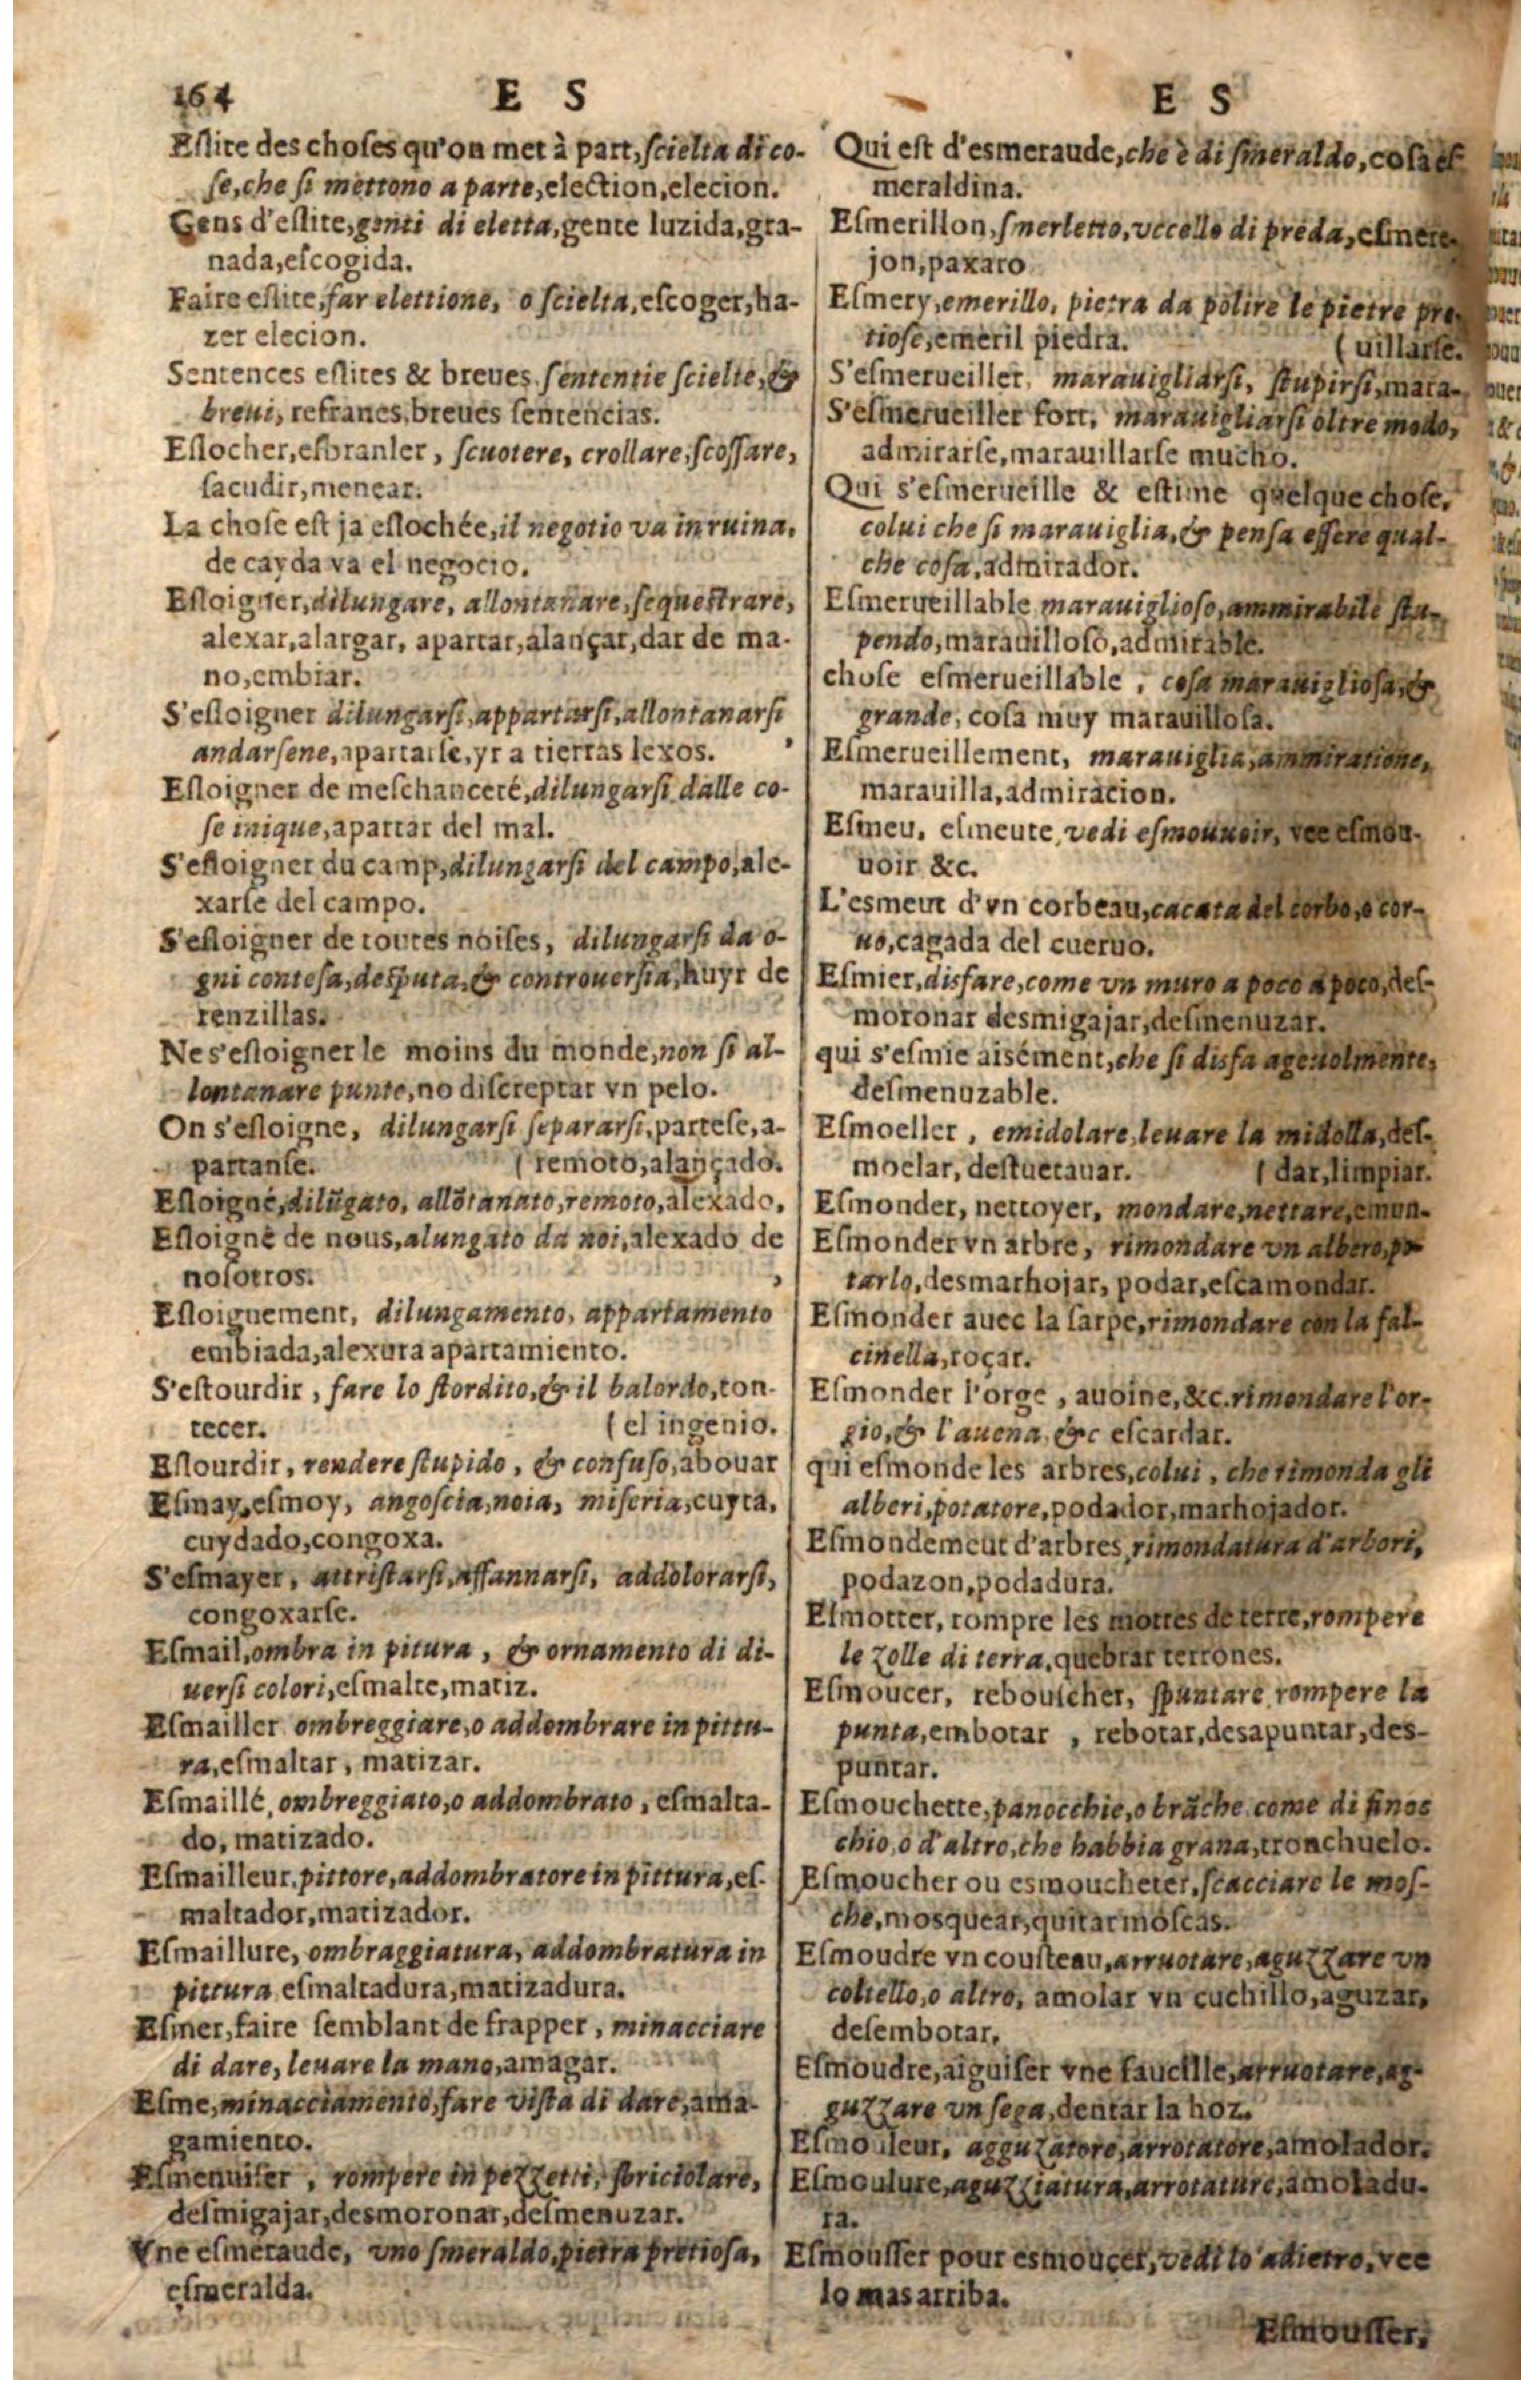 164 E S
Eſlite des choſes qu'on met à part, ſcielta di co-
ſe, che ſi mettono a parte, election, elecion.
Gens d'eſlite, genti di eletta, gente luzida, gra-
nada, eſcogida.
Faire eſlite, far elettione, o ſcielta, eſcoger, ha-
zer elecion.
Sentences eſlites & breues. ſententie ſcielte, &
breui, refranes, breues ſentencias.
Eſlocher, eſbranler, ſcuotere, crollare, ſcoſſare,
ſacudir, menear.
La choſe est ja eſlochée, il negotio va in ruina,
de cayda va el negocio.
Eſloigner, dilungare, allontanare, ſequeſtrare,
alexar, alargar, apartar, alançar, dar de ma-
no, embiar.
S'eſloigner dilungarſi, appartarſi, allontanarſi
andarſene, apartarſe, yr a tierras lexos.
Eſloigner de meſchanceté, dilungarſi dalle co-
ſe inique, apartar del mal.
S'eſloigner du camp, dilungarſi del campo, ale-
xarſe del campo.
S'eſloigner de toutes noiſes, dilungarſi da o-
gni conteſa, deſputa, & controuerſia, huyr de
renzillas.
Ne s'eſloigner le moins du monde, non ſi al-
lontanare punto, no diſcreptar vn pelo.
On s'eſloigne, dilungarſi ſepararſi, parteſe, a-
partanſe. ( remoto, alançado.
Eſloigné, dilũgato, allõtanato, remoto, alexado,
Eſloigné de nous, alungato da noi, alexado de
noſotros.
Eſloignement, dilungamento, appartamento
embiada, alexura apartamiento.
S'eſtourdir, fare lo ſtordito, & il balordo, ton-
tecer. ( el ingenio.
Eſlourdir, rendere ſtupido, & confuſo, abouar
Eſmay, eſmoy, angoſcia, noia, miſeria, cuyta,
cuydado, congoxa.
S'eſmayer, attriſtarſi, affannarſi, addolorarſi,
congoxarſe.
Eſmail, ombra in pitura, & ornamento di di-
uerſi colori, eſmalte, matiz.
Eſmailler ombreggiare, o addombrare in pittu-
ra, eſmaltar, matizar.
Eſmaillé, ombreggiato, o addombrato, eſmalta-
do, matizado.
Eſmailleur, pittore, addombratore in pittura, eſ-
maltador, matizador.
Eſmaillure, ombraggiatura, addombratura in
pittura eſmaltadura, matizadura.
Eſmer, faire ſemblant de frapper, minacciare
di dare, leuare la mano, amagar.
Eſme, minacciamento, fare viſta di dare, ama-
gamiento.
Eſmenuiſer, rompere in pezzetti, ſbriciolare,
deſmigajar, desmoronar, deſmenuzar.
Vne eſmeraude, vno ſmeraldo, pietra pretioſa,
eſmeralda.
E S
Qui est d'esmeraude, che è di ſmeraldo, coſa eſ-
meraldina.
Eſmerillon, ſmerletto, vccello di preda, eſmere-
jon, paxaro
Eſmery, emerillo, pietra da polire le pietre pre-
tioſe, emeril piedra. ( uillarſe.
S'eſmerueiller, marauigliarſi, ſtupirſi, mara-
S'eſmerueiller fort, marauigliarſi oltre modo,
admirarſe, marauillarſe mucho.
Qui s'eſmerueille & eſtime quelque choſe,
colui che ſi marauiglia, & penſa eſſere qual-
che coſa, admirador.
Eſmerueillable marauiglioſo, ammirabile ſtu-
pendo, marauilloſo, admirable.
choſe eſmerueillable, coſa marauiglioſa, &
grande, coſa muy marauilloſa.
Eſmerueillement, marauiglia, ammiratione,
marauilla, admiracion.
Eſmeu, eſmeute, vedi eſmouuoir, vee eſmou-
uoir &c.
L'esmeut d'vn corbeau, cacata del corbo, o cor-
uo, cagada del cueruo.
Eſmier, disfare, come vn muro a poco a poco, deſ-
moronar desmigajar, deſmenuzar.
qui s'eſmie aisément, che ſi disfa ageuolmente,
deſmenuzable.
Eſmoeller, emidolare, leuare la midolla, deſ-
moelar, deſtuetanar. ( dar, limpiar.
Eſmonder, nettoyer, mondare, nettare, emun-
Eſmonder vn arbre, rimondare vn albero, po-
tarlo, desmarhojar, podar, eſcamondar.
Eſmonder auec la ſarpe, rimondare con la fal-
cinella, roçar.
Eſmonder l'orge, auoine, &c. rimondare l'or-
gio, & l'auena, &c eſcardar.
qui eſmonde les arbres, colui, che rimonda gli
alberi, potatore, podador, marhojador.
Eſmondement d'arbres, rimondatura d'arbori,
podazon, podadura.
Eſmotter, rompre les mottes de terre, rompere
le zolle di terra, quebrar terrones.
Eſmoucer, rebouſcher, ſpuntare, rompere la
punta, embotar, rebotar, desapuntar, des-
puntar.
Eſmouchette, panocchie, o brãche come di finoc
chio, o d'altro, che habbia grana, tronchuelo.
Eſmoucher ou esmoucheter, ſcacciare le moſ-
che, mosquear, quitar moſcas.
Eſmoudre vn couſteau, arruotare, aguzzare vn
coltello, o altro, amolar vn cuchillo, aguzar,
deſembotar,
Eſmoudre, aiguiſer vne faucille, arruotare, ag-
guzzare vn ſega, dentar la hoz.
Eſmouleur, agguzatore, arrotatore, amolador.
Eſmoulure, aguzziatura, arrotature, amoladu-
ra.
Eſmouſſer pour esmoucer, vedi lo adietro, vee
lo mas arriba.
Eſmouſſer,